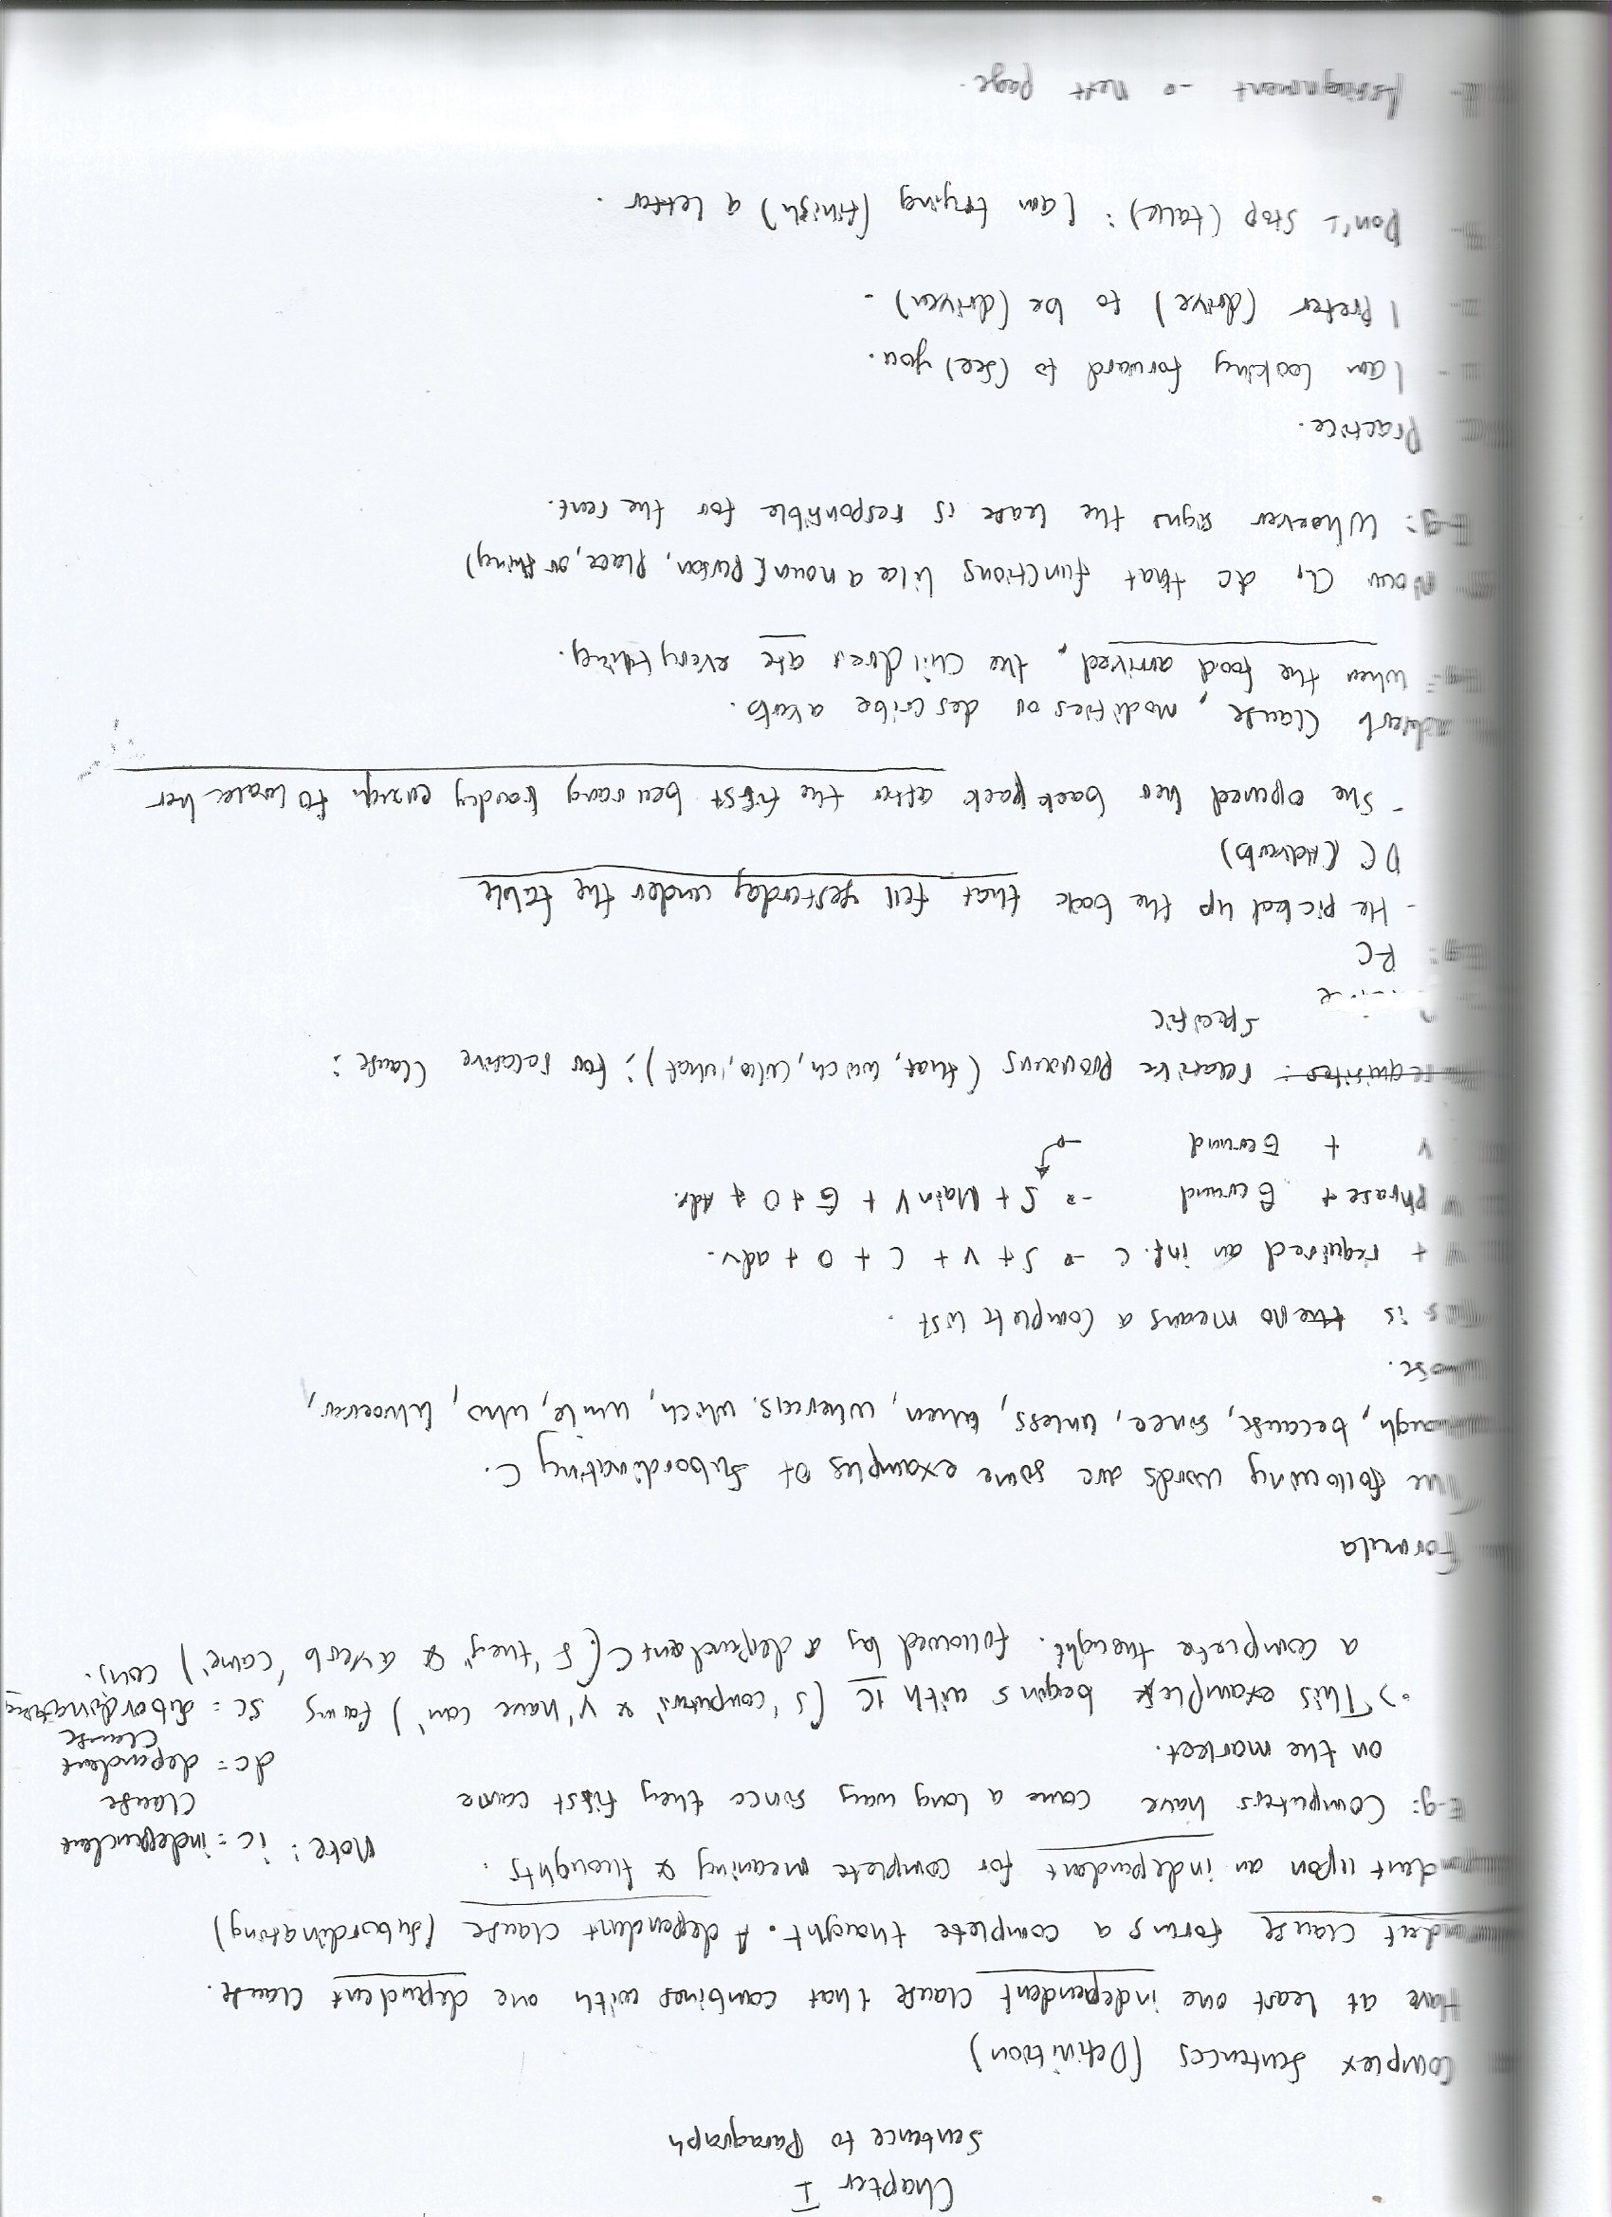 Chapter I
Sentence to Paragraph
Complex Sentences (Definition)
Have at least one independent clause that combines with one dependent clause.
ndent clause forms a complete thought. A dependent clause (subordinating)
dent upon an independent for complete meaning & thoughts.
Note: ic = independent
clause
E-g: Computers have came a long way since they first came
on the market.
dc = dependent
clause
This example begins with IC (s 'computers' & v 'have can')
sc = subordinating
a complete thought. followed by a dependent C (s "they" & a verb 'came') conj.
Formula
The following words are some examples of subordinating C.
ough, because, since, unless, when, whereas, which, while, who, whoever,
hose.
s is the no means a complete list.
+ required an inf. C → S + V + C + O + adv.
Phrase + Gerund → S + Main V + G + O + Adv.
V + Gerund →
requisites: relative Pronouns (that, wich, who, what); for relative clause:
Specific
Eg: RC
- He picked up the book that fell yesterday under the table
DC (Adverb)
- She opened her backpack after the first bell rang loudly enough to wake her
dverb clause, modifies or describe averb.
Eg: When the food arrived, the children ate everything.
Noun Cl, dc that functions like a noun (Person, Place, or thing)
E-g: Whoever signs the lease is responsible for the rent.
Practice.
I am looking forward to (see) you.
I Prefer (drive) to be (driven).
Don't stop (talk): I am trying (finish) a letter.
Assignment → next page.